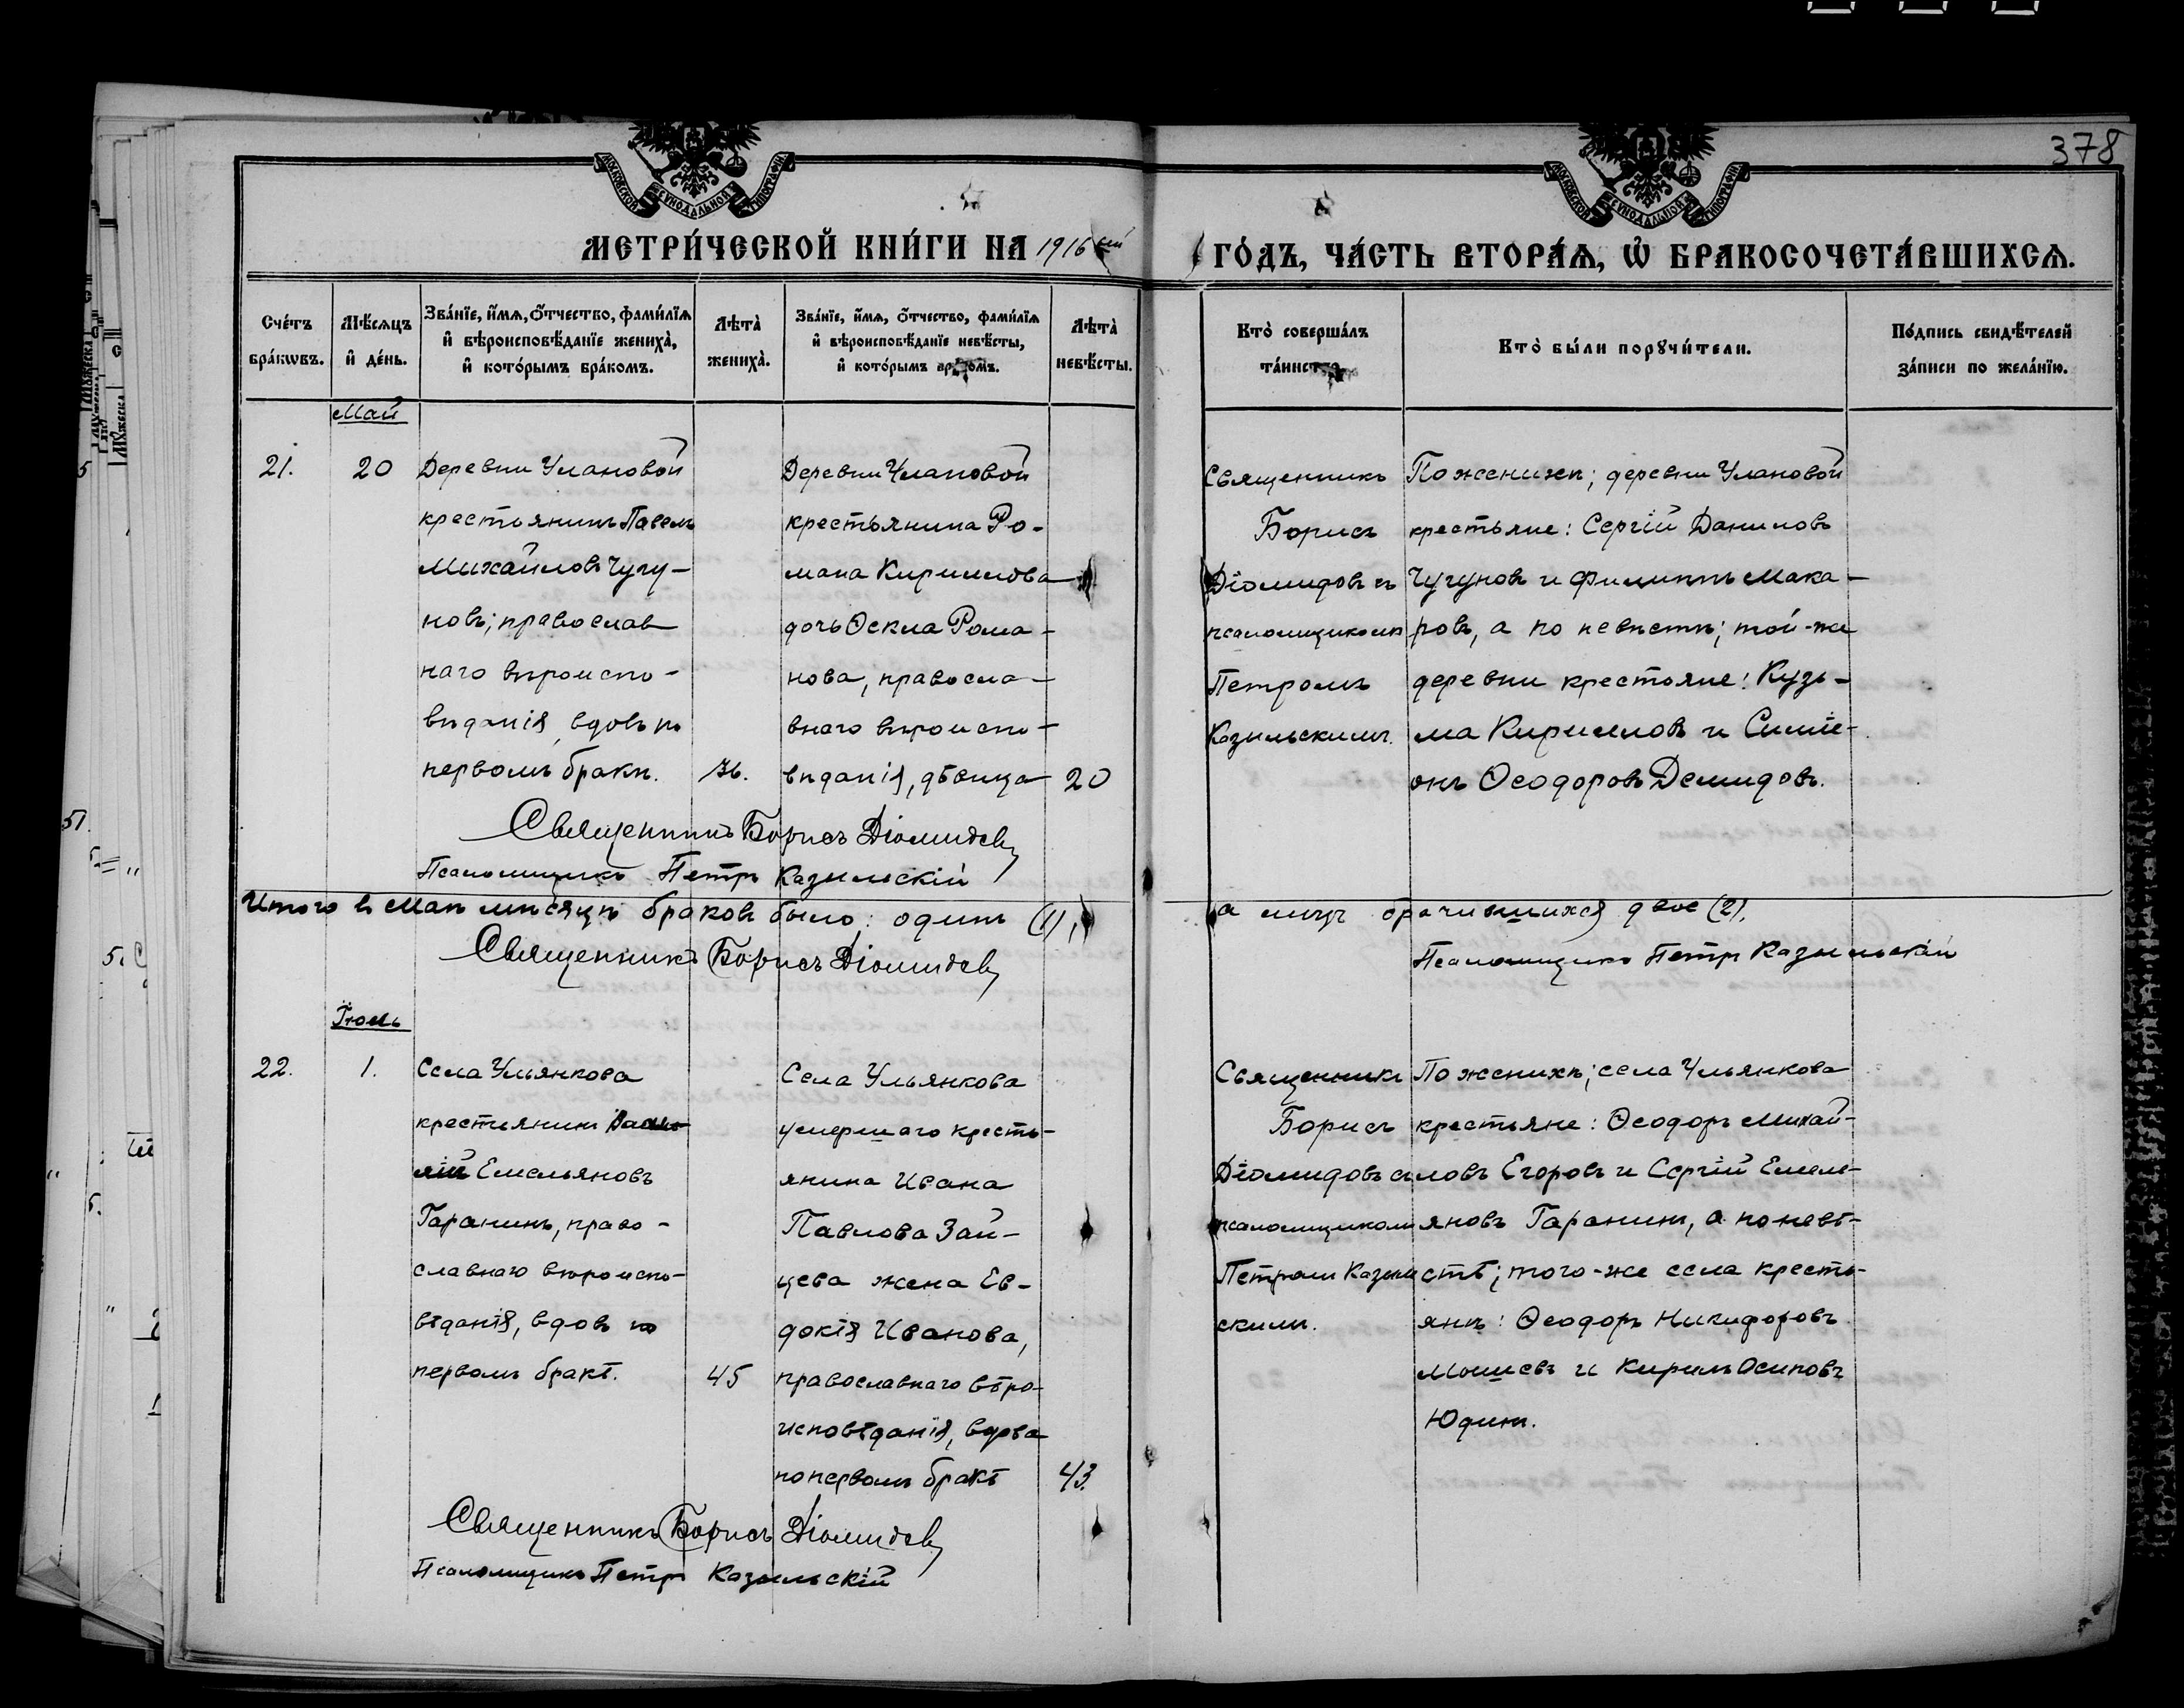 378
МОСКОВСКОЙ СУНОДАЛЬНОЙ ТИПОГРАФІИ
МОСКОВСКОЙ СУНОДАЛЬНОЙ ТИПОГРАФІИ
МЕТРИ́ЧЕСКОЙ КНИ́ГИ НА 1916 ый ГО́ДЪ, ЧА́СТЬ ВТОРА́Ѧ, Ѡ БРАКОСОЧЕТА́ВШИХСѦ.
Сче́тъ бра́кѡвъ.
Мѣ́сѧцъ и҆ де́нь.
Зва́нїе, и҆́мѧ, ѻ҆́тчество, фами́лїѧ
и҆ вѣроисповѣ́данїе жениха̀,
и҆ кото́рымъ бра́комъ.
Лѣта̀ жениха̀.
Зва́нїе, и҆́мѧ, ѻ҆́тчество, фами́лїѧ
и҆ вѣроисповѣ́данїе невѣ́сты,
и҆ кото́рымъ бра́комъ.
Лѣта̀ невѣ́сты.
Кто̀ соверша́лъ
та́инство
Кто̀ бы́ли порꙋчи́тели.
По́дпись свидѣ́телей
за́писи по жела́нїю.
Май
21.
20
Деревни Улановой
крестьянинъ Павелъ
Михайловъ Чугу-
новъ; православ
наго вѣроиспо-
вѣданія, вдовъ по
первомъ бракѣ.
36.
Деревни Улановой
крестьянина Ро-
мана Кириллова
дочь Ѳекла Рома-
нова, правосла-
внаго вѣроиспо-
вѣданія, дѣвица
20
Священникъ
Борисъ
Діомидовъ съ
псаломщикомъ
Петромъ
Казыльскимъ.
По женихѣ; деревни Улановой
крестьяне: Сергій Даниловъ
Чугуновъ и Филиппъ Мака-
ровъ, а по невѣстѣ; той-же
деревни крестьяне: Кузь-
ма Кирилловъ и Симе-
онъ Ѳеодоровъ Демидовъ.
Священникъ Борисъ Діомидовъ
Псаломщикъ Петръ Казыльскій
Итого въ маѣ мѣсяцѣ браковъ было: одинъ (1), а лицъ брачившихся двое (2).
Священникъ Борисъ Діомидовъ
Псаломщикъ Петръ Казыльскій
Іюль
22.
1.
Села Ульянкова
крестьянинъ Васи-
лій Емельяновъ
Гаранинъ, право-
славнаго вѣроиспо-
вѣданія, вдовъ по
первомъ бракѣ.
45
Села Ульянкова
умершаго кресть-
янина Ивана
Павлова Зай-
цева жена Ев-
докія Иванова,
православнаго вѣро-
исповѣданія, вдова
по первомъ бракѣ
43.
Священникъ
Борисъ
Діомидовъ съ
псаломщикомъ
Петромъ Казыль
скимъ.
По женихѣ; села Ульянкова
крестьяне: Ѳеодоръ Михай-
ловъ Егоровъ и Сергій Емель-
яновъ Гаранинъ, а по невѣ-
стѣ; того-же села кресть-
янѣ: Ѳеодоръ Никифоровъ
Мошевъ и Кирилъ Осиповъ
Юдинъ.
Священникъ Борисъ Діомидовъ
Псаломщикъ Петръ Казыльскій